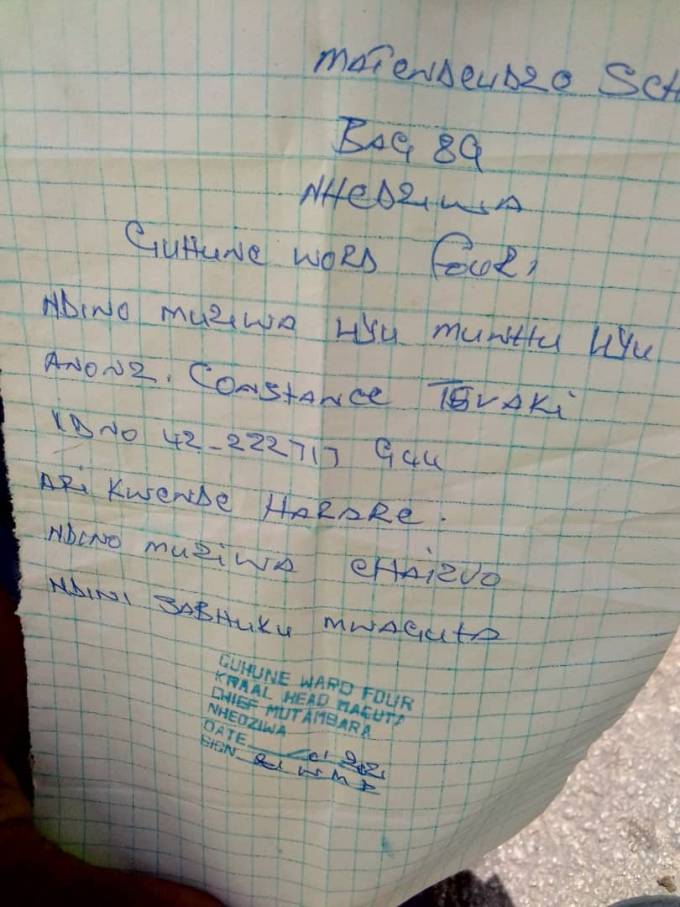 MATENDEUDZO SCH
BAG 89
NHEDZIWA
GUHUNE WORD FOUR
NDINO MUZIWA UYU MUNHU UYU
ANONZ. CONSTANCE TSVAKI
IDNO 42-222717 G44
ARI KWENDE HARARE.
NDINO MUZIWA CHAIZVO
NDINI SABHUKU MWAGUTA
GUHUNE WARD FOUR
KRAAL HEAD MAGUTA
CHIEF MUTAMBARA
NHEDZIWA
DATE
SIGN